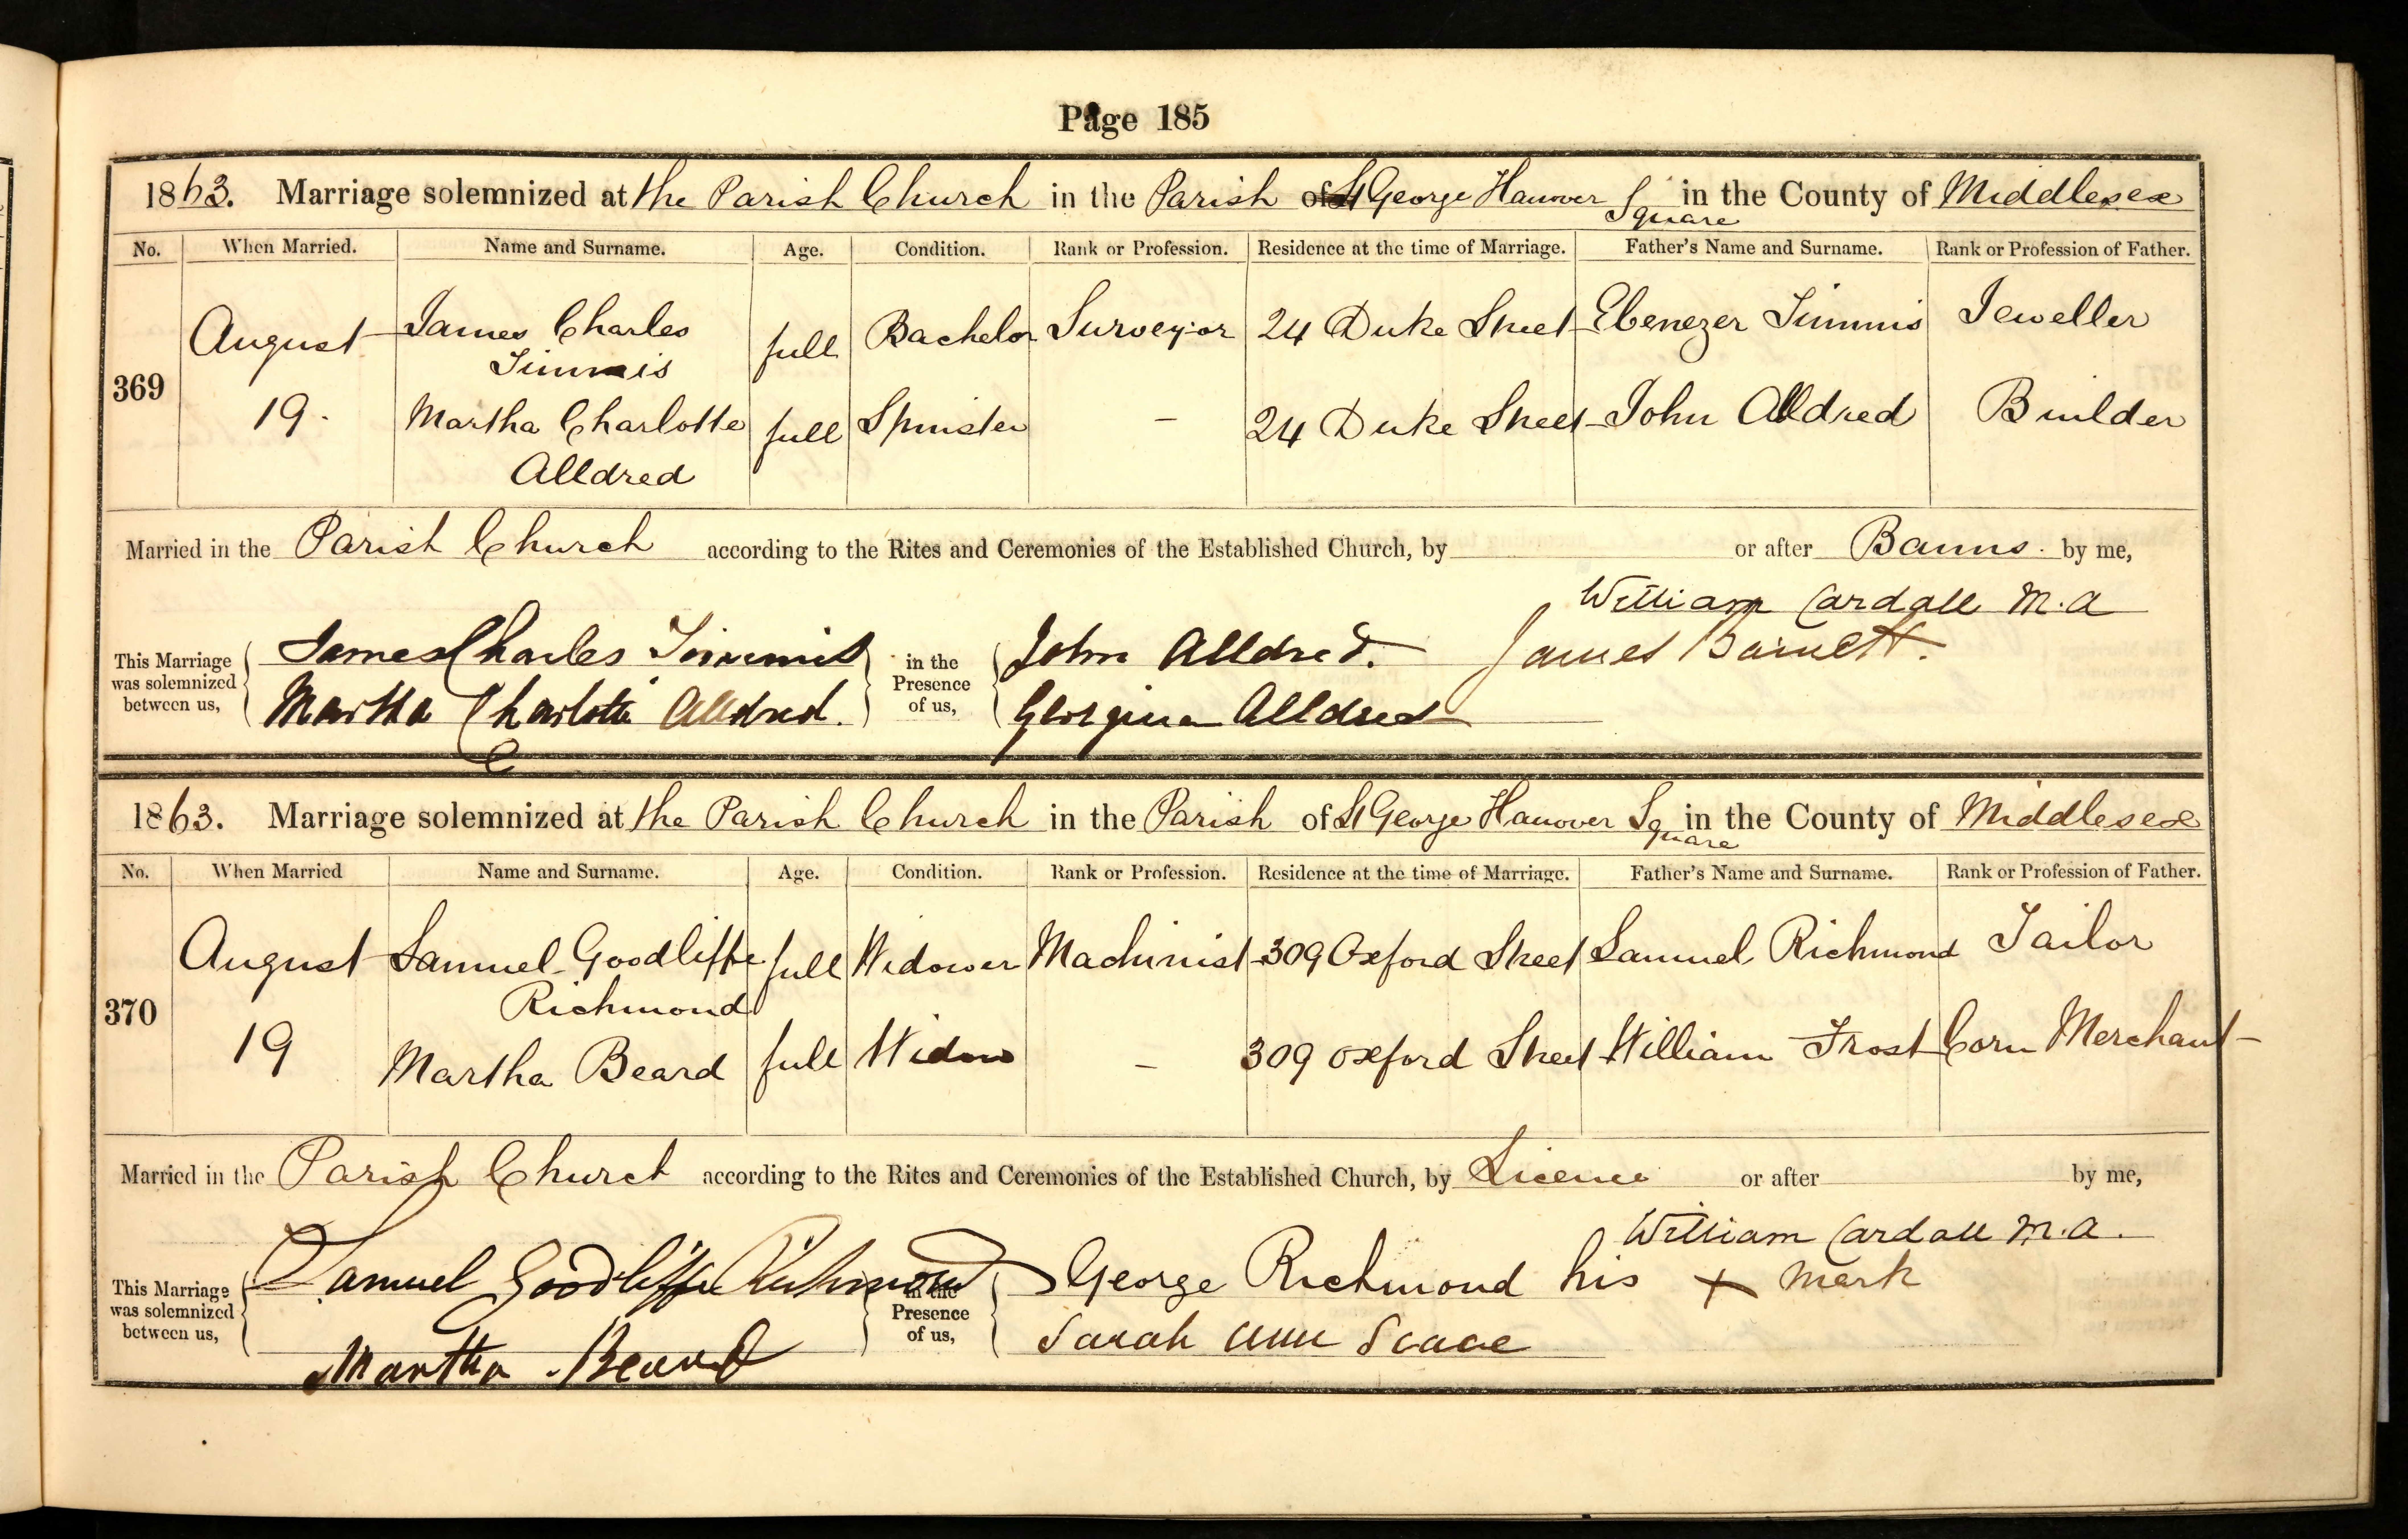 Page 185
1863. Marriage solemnized at the Parish Church in the Parish of St George Hanover Square in the County of Middlesex
No. When Married. Name and Surname. Age. Condition. Rank or Profession. Residence at the time of Marriage. Father's Name and Surname. Rank or Profession of Father.
August James Charles Timmis full Bachelor Surveyor 24 Duke Street Ebenezer Timmis Jeweller
369
19. Martha Charlotte Alldred full Spinster - 24 Duke Street John Alldred Builder
Married in the Parish Church according to the Rites and Ceremonies of the Established Church, by or after Banns. by me,
William Cardall M.A
This Marriage was solemnized between us, James Charles Timmis in the Presence of us, John Alldred. James Barnett.
Martha Charlotte Alldred. Georgina Alldred
1863. Marriage solemnized at the Parish Church in the Parish of St George Hanover Square in the County of Middlesex
No. When Married Name and Surname. Age. Condition. Rank or Profession. Residence at the time of Marriage. Father's Name and Surname. Rank or Profession of Father.
August Samuel Goodliffe Richmond full Widower Machinist 309 Oxford Street Samuel Richmond Tailor
370
19 Martha Beard full Widow - 309 Oxford Street William Frost Corn Merchant
Married in the Parish Church according to the Rites and Ceremonies of the Established Church, by Licence or after by me,
William Cardall M.A.
This Marriage was solemnized between us, Samuel Goodliffe Richmond in the Presence of us, George Richmond his x mark
Martha Beard Sarah Ann